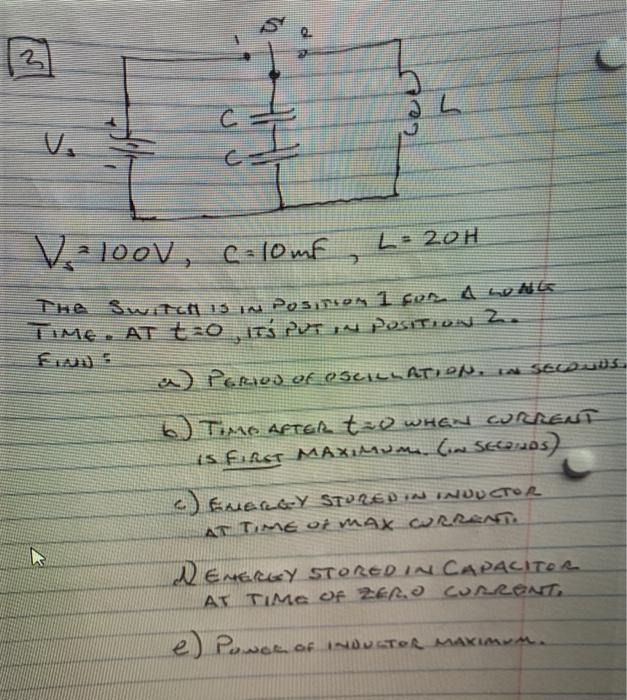 3
1 S 2
C
C
L
Vs
+
-
Vs = 100V, C = 10mF, L = 20H
THE SWITCH IS IN POSITION 1 FOR A LONG
TIME. AT t=0, IT'S PUT IN POSITION 2.
FIND:
a) PERIOD OF OSCILLATION. IN SECONDS.
b) TIME AFTER t=0 WHEN CURRENT
IS FIRST MAXIMUM. (IN SECONDS)
c) ENERGY STORED IN INDUCTOR
AT TIME OF MAX CURRENT.
d) ENERGY STORED IN CAPACITOR
AT TIME OF ZERO CURRENT.
e) POWER OF INDUCTOR MAXIMUM.